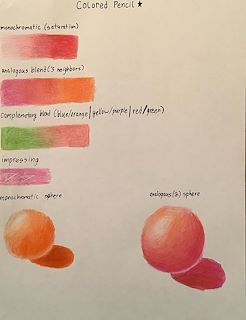 Colored Pencil ★
monochromatic (saturation)
analogous blend (3 neighbors)
complementary blend (blue/orange|yellow/purple|red/green)
impressing
monochromatic sphere
analogous (3) sphere